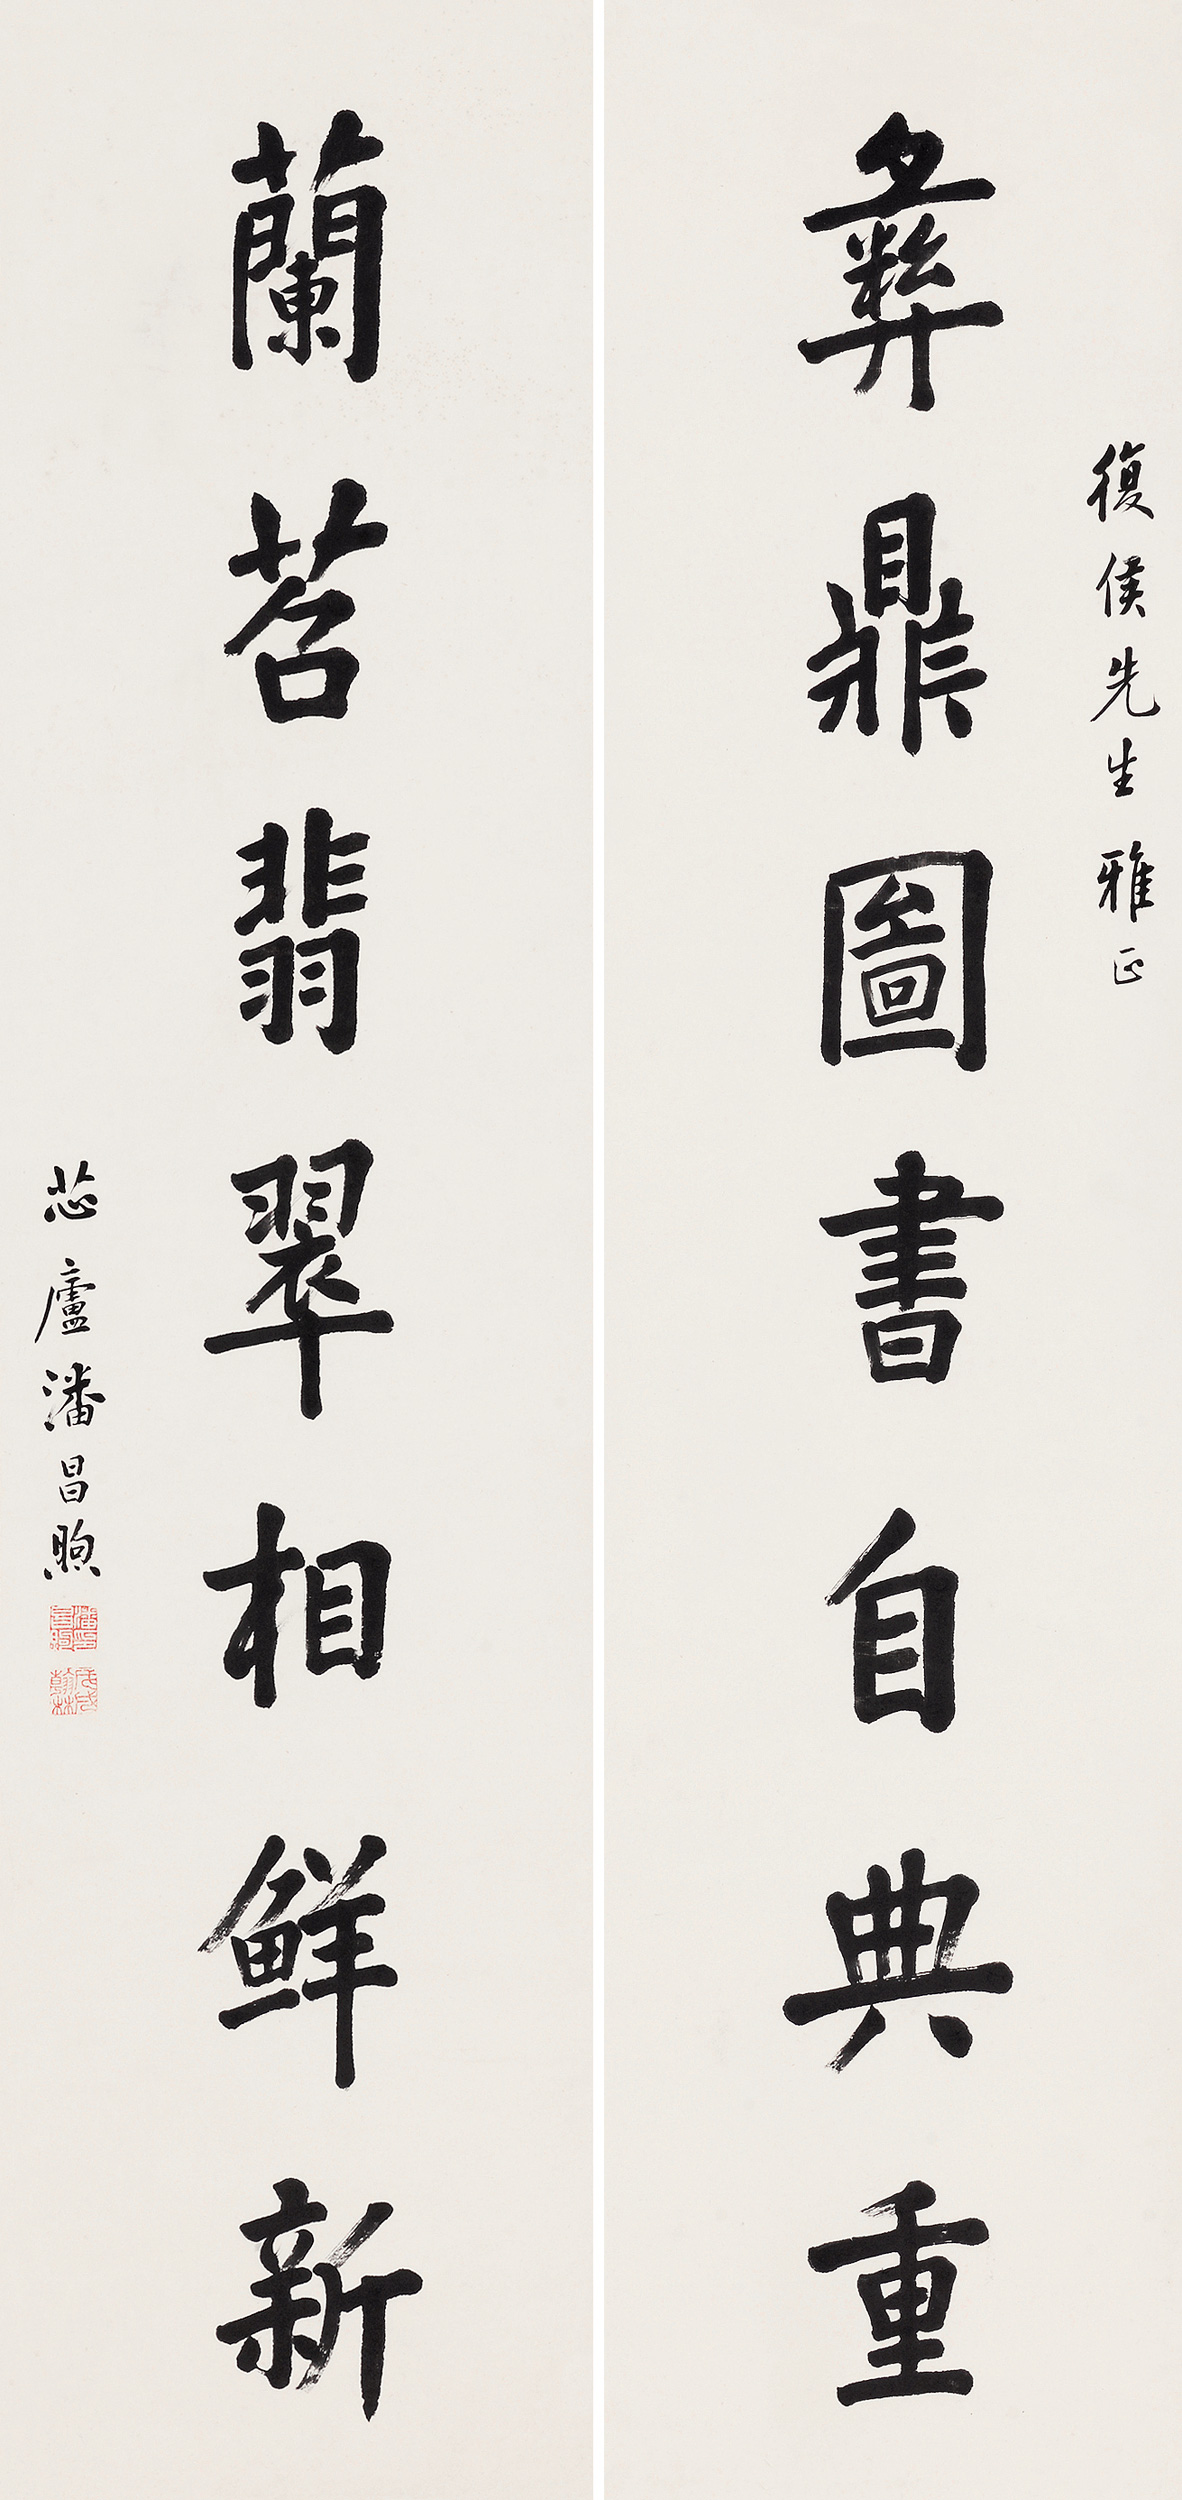 復侯先生雅正
彝鼎圖書自典重
蘭苕翡翠相鮮新
芯廬潘昌煦